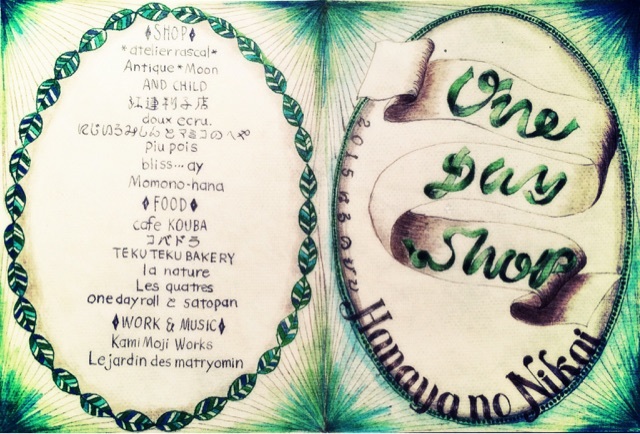 ♦SHOP♦
*atelier rascal*
Antique*Moon
AND CHILD
紅蓮利子店
doux ecru.
にじいろみしんとマミコのへや
piu pois
bliss...ay
Momono-hana
♦FOOD♦
cafe KOUBA
コペドラ
TEKU TEKU BAKERY
la nature
Les quatres
one day roll と satopan
♦WORK & MUSIC♦
Kami Moji Works
Le jardin des matryomin
One
Day
Shop
2015 はるのマ
Hanaya no Nikai